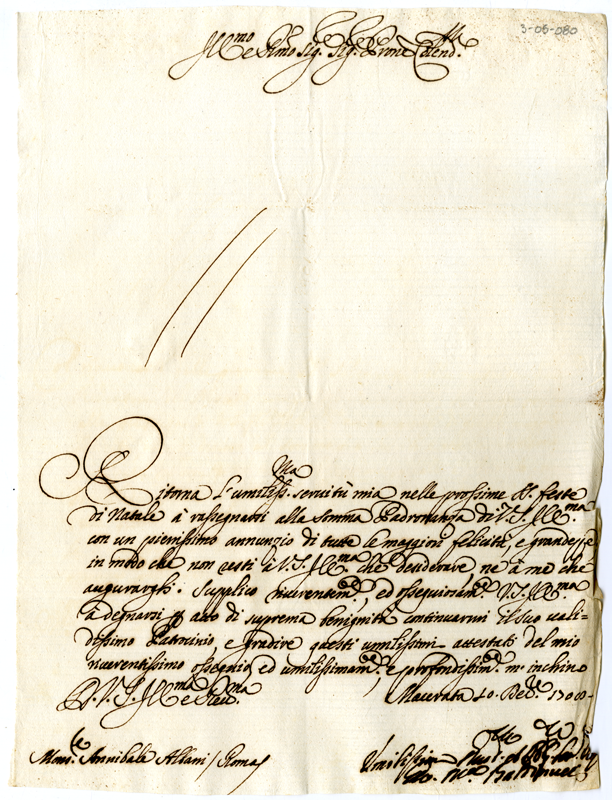 3-06-080
Ill.mo e Rmo Sig. Sig. Prone Colend.
Ritorna l'umiliss.ma servitù mia nelle prossime SS. feste
di Natale à rassegnarsi alla somma Padronanza di V. S. Ill.ma
con un pienissimo annunzio di tutte le maggiori felicità, e grandezze
in modo che non resti à V. S. Ill.ma che desiderare, ne à me che
augurargli. Supplico riverentem.te, ed ossequiosam.te V. S. Ill.ma
à degnarsi p atto di suprema benignità continuarmi il suo vali-
dissimo Patrocinio, e gradire questi umilissimi attestati del mio
riverentissimo ossequio, ed umilissimam.te, e profondissim.te m'inchino
D. V. S. Ill.ma e Rev.ma Macerata 10. Dec.re 1700
Mons.re Annibale Albani / Roma